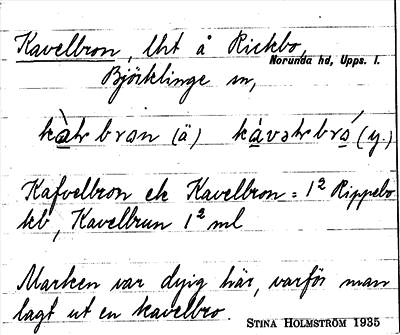 Kavelbron, lht å Rickbo,
Norunda hd, Upps. l.
Björklinge sn,
bron (ä) (y.)
Kafvelbron ek Kavelbron = 1² Rippebo
kb, Kavelbrun 1² ml
Marken var dyig här, varför man
lagt ut en kavelbro.
STINA HOLMSTRÖM 1935